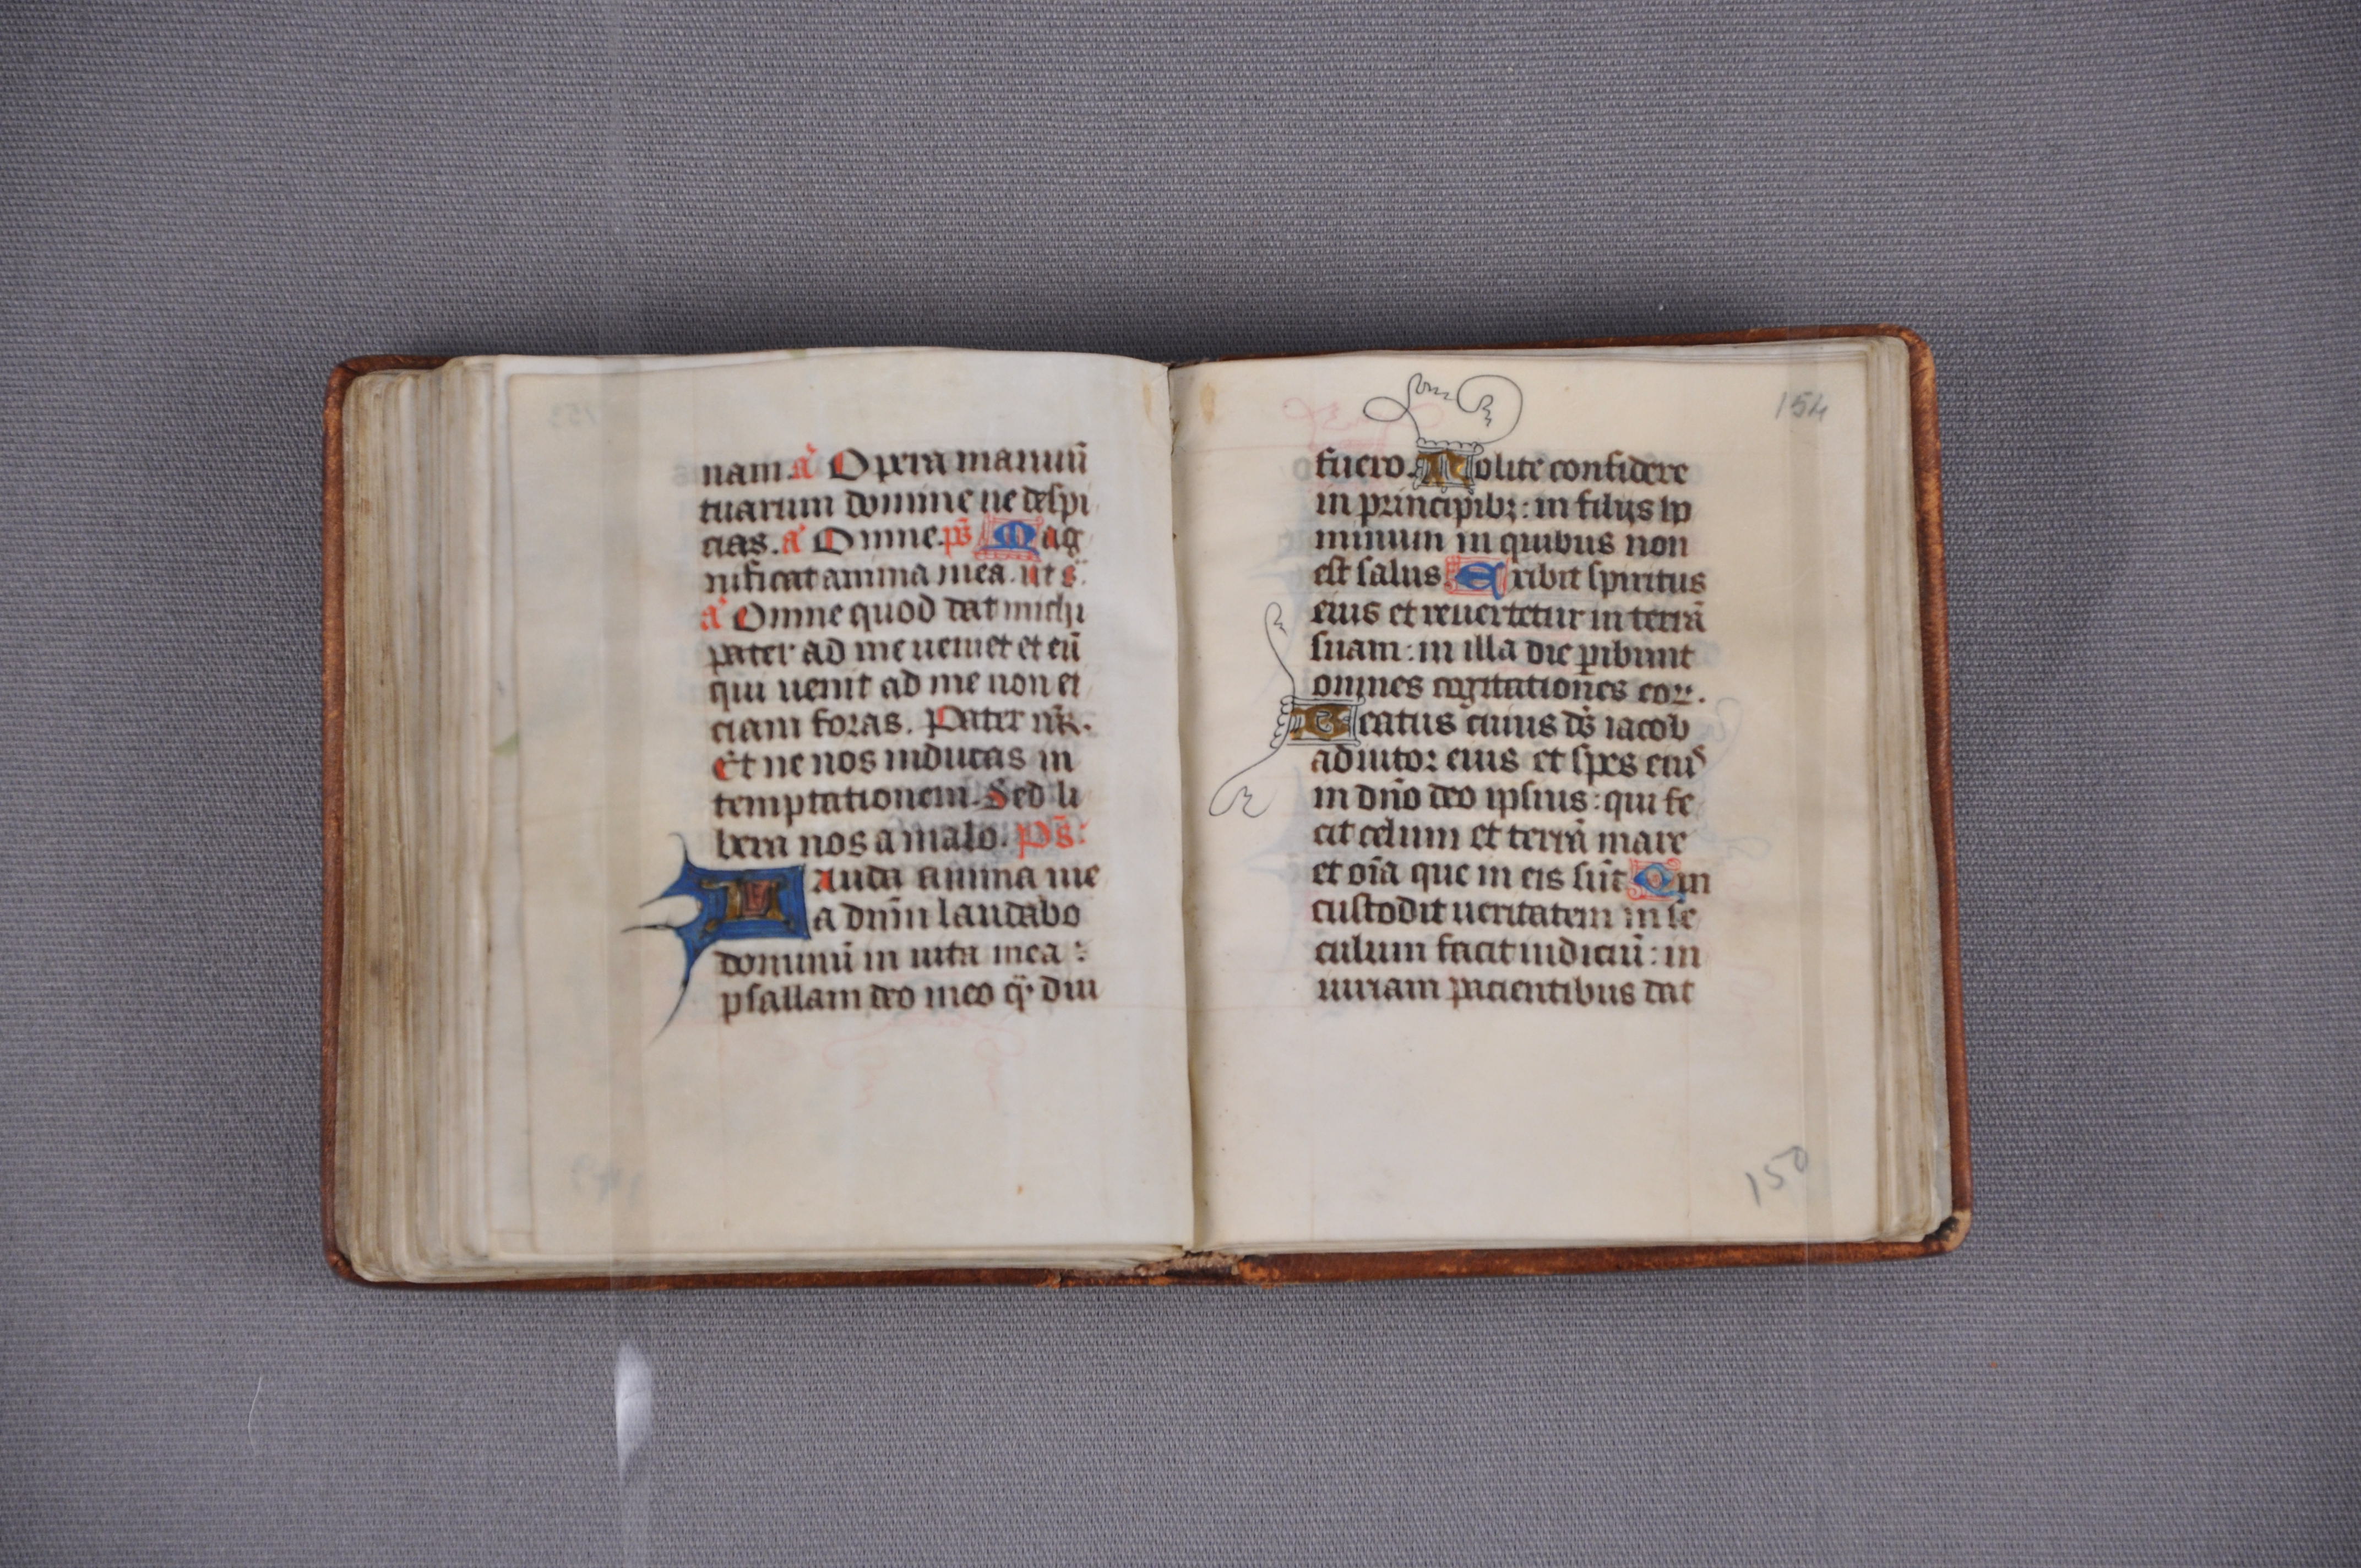 nam. a᷎ Opera manuū
tuarum domine ne despi
cias. a᷎ Omne. ps̄ Mag
nificat anima mea. ut s̄.
a᷎ Omne quod dat michi
pater ad me ueniet et eū
qui uenit ad me non ei
ciam foras. Pater nr̄.
Et ne nos inducas in
temptationem. Sed li
bera nos a malo. Ps̄:
Lauda anima me
a dnm̄ laudabo
dominū in uita mea:
psallam deo meo qͣdiu
154
fuero. Nolite confidere
in principibꝫ: in filijs ho
minum in quibus non
est salus Exibit spiritus
eius et reuertetur in terrā
suam: in illa die ꝑibunt
omnes cogitationes eoꝝ.
Beatus cuius ds̄ iacob
adiutor eius et spes eius
in dn̄o deo ipsius: qui fe
cit celum et terrā mare
et oīa que in eis sūt Qui
custodit ueritatem in se
culum facit iudiciū: in
iuriam pacientibus dat
150